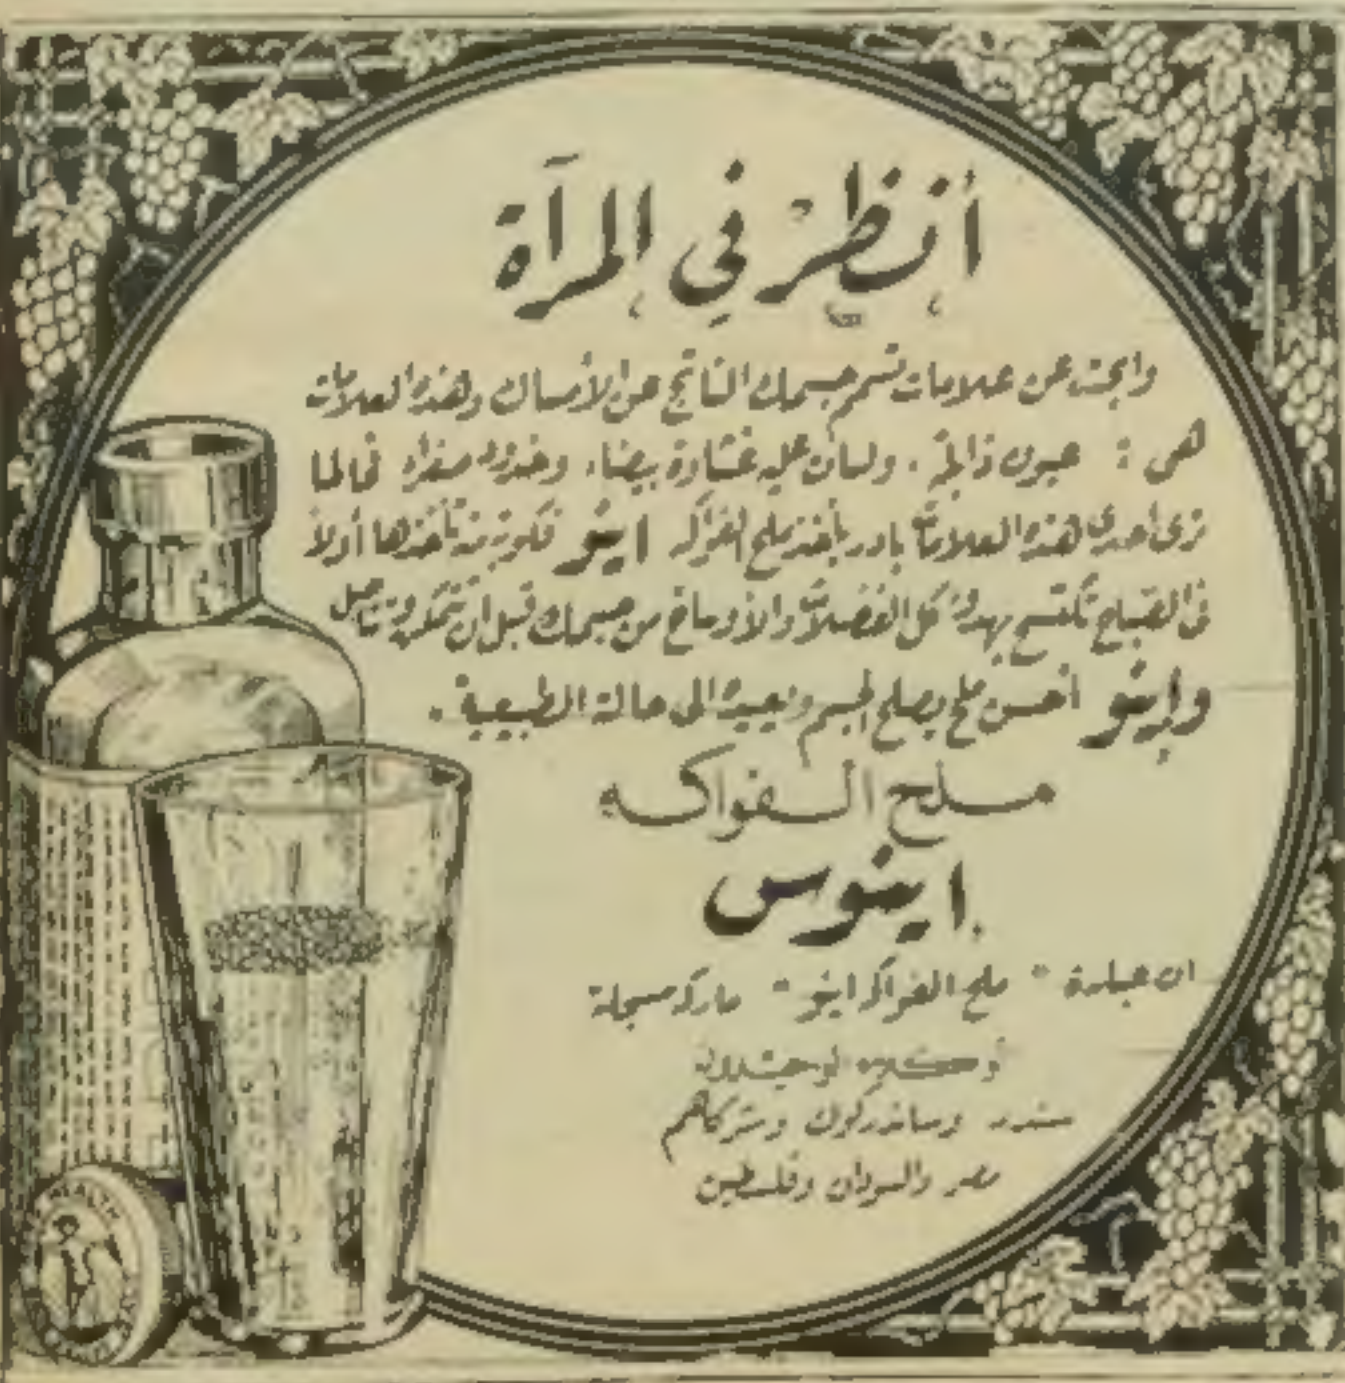 أنظر في المرآة
وابحث عن علامات تسمم جسمك الناتج عن الأمساك وهذه العلامات
هي : عيون ذابلة . ولسان عليه غشاوة بيضاء . وخدود صفراء فحالما
ترى أحدى هذه العلامات بادر بأخذ ملح الفواكه اينو فكوبة منه تأخذها أولاً
في الصباح تكتسح بهدوء كل الفضلات والأوساخ من جسمك قبل أن تتمكن وتتأصل
واينو أحسن ملح يصلح الجسم ويعيده الى حالته الطبيعية .
ملح الفواكه
اينوس
ان عبارة " ملح الفواكه اينو " ماركة مسجلة
الوحيدون
وساندركوك وشركاهم
مصر والسودان وفلسطين
HEALTH